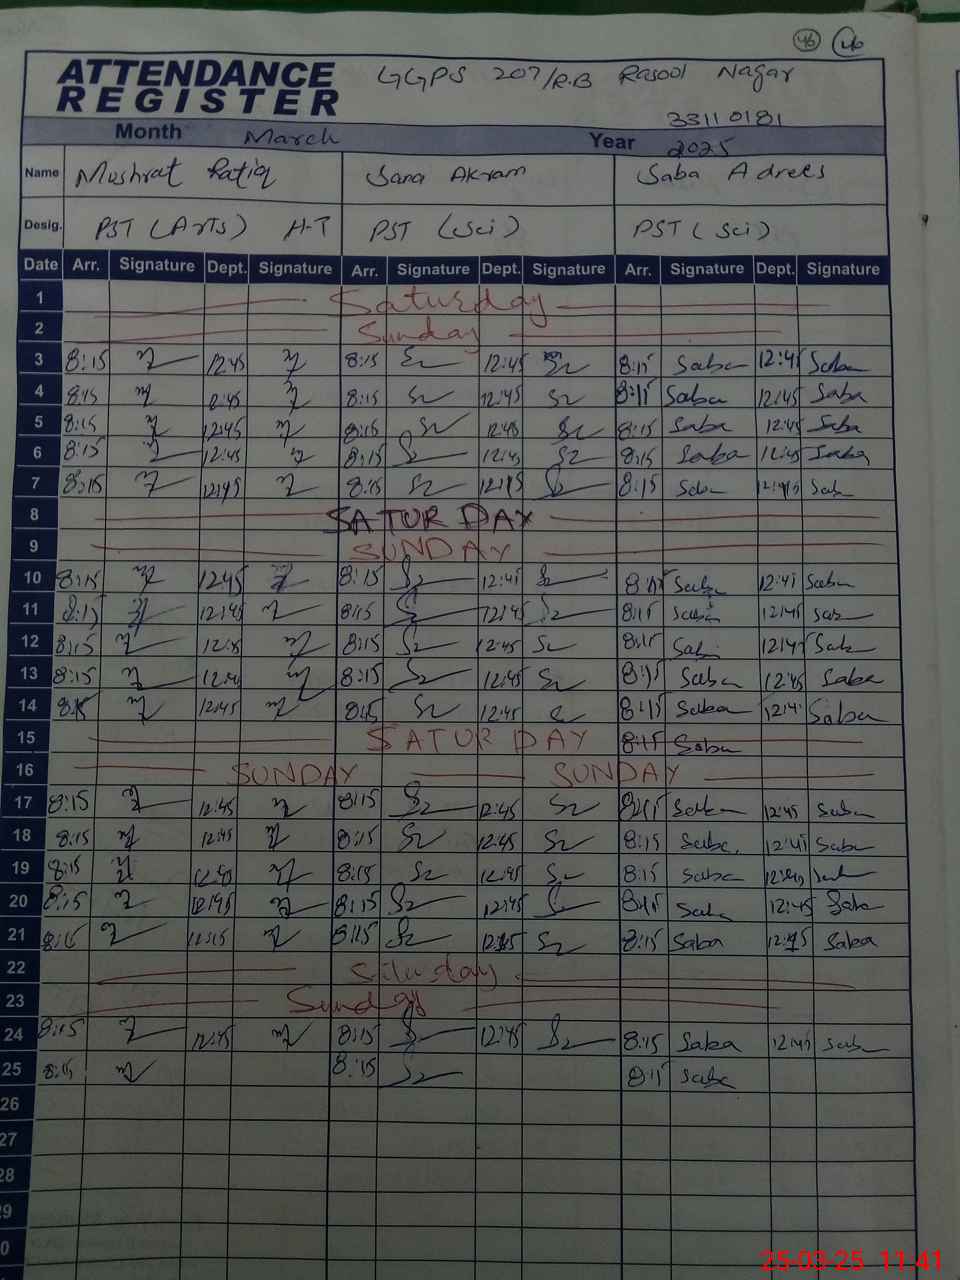 46 46
ATTENDANCE REGISTER GGPS 207/R.B Rasool Nagar
33110181
Month March Year 2025
Name Mushrat Rafiq Sana Akram Saba Adrees
Desig. PST (Arts) H-T PST (Sci) PST (Sci)
Date Arr. Signature Dept. Signature Arr. Signature Dept. Signature Arr. Signature Dept. Signature
1 Saturday
2 Sunday
3 8:15 12:45 8:15 12:45 8:15 Saba 12:45 Saba
4 8:15 12:45 8:15 12:45 8:15 Saba 12:45 Saba
5 8:15 12:45 8:15 12:45 8:15 Saba 12:45 Saba
6 8:15 12:45 8:15 12:45 8:15 Saba 12:45 Saba
7 8:15 12:45 8:15 12:45 8:15 Saba 12:45 Sab
8 SATURDAY
9 SUNDAY
10 8:15 12:45 8:15 12:45 8:15 Saba 12:45 Saba
11 8:15 12:45 8:15 12:45 8:15 Saba 12:45 Saba
12 8:15 12:45 8:15 12:45 8:15 Saba 12:45 Saba
13 8:15 12:45 8:15 12:45 8:15 Saba 12:45 Saba
14 8:15 12:45 8:15 12:45 8:15 Saba 12:4 Saba
15 SATURDAY 8:15 Saba
16 SUNDAY SUNDAY
17 8:15 12:45 8:15 12:45 8:15 Saba 12:45 Saba
18 8:15 12:45 8:15 12:45 8:15 Saba 12:45 Saba
19 8:15 12:40 8:15 12:45 8:15 Saba 12:40 Saba
20 8:15 12:45 8:15 12:45 8:15 Saba 12:45 Saba
21 8:15 8:15 12:45 8:15 Saba 12:45 Saba
22
23 Sunday
24 8:15 12:45 8:15 12:45 8:15 Saba 12:45 Saba
25 8:15 8:15 8:15 Saba
26
27
28
29
0
25-03-25 11:41